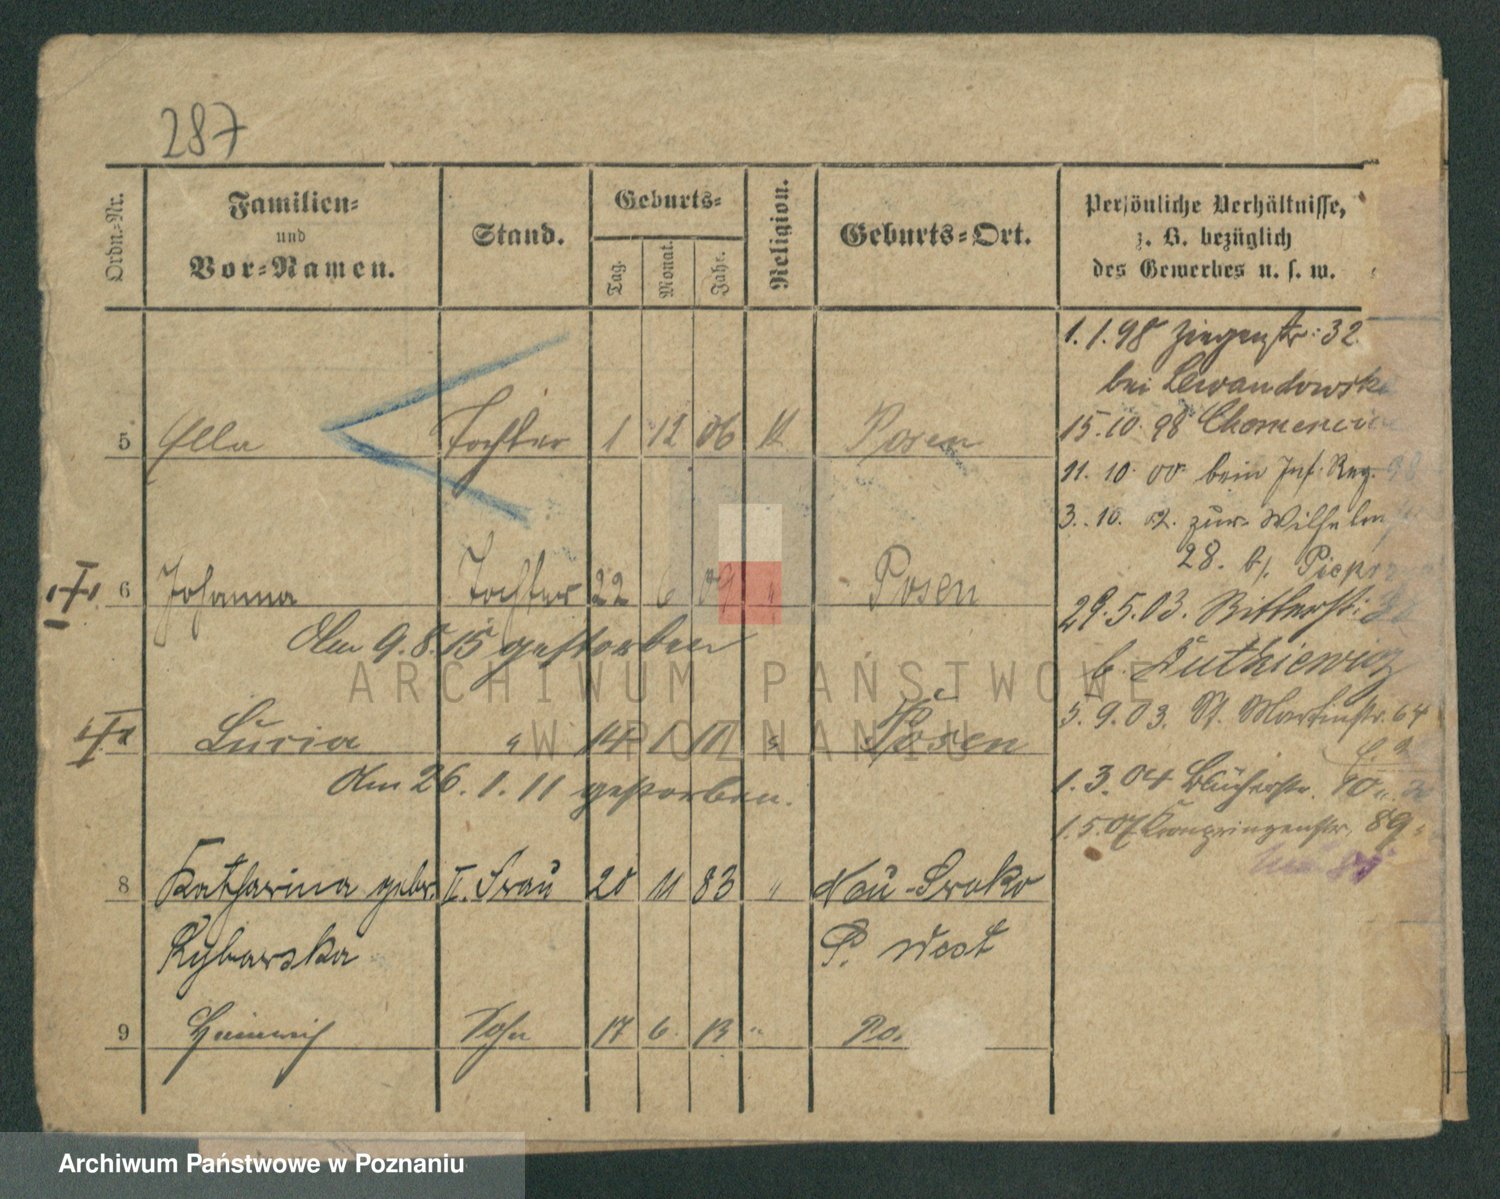 287
Ordn.-Nr.
Familien-
und
Vor-Namen.
Stand.
Geburts-
Tag.
Monat.
Jahr.
Religion.
Geburts-Ort.
Persönliche Verhältnisse,
z. B. bezüglich
des Gewerbes u. s. w.
5 Ella Tochter 1 12 06 Posen
6 Johanna Tochter 22 6 09 " Posen
Am 9.8.15 gestorben
Lucia " 14 1 11 " Posen
Am 26.1.11 gestorben.
8 Katharina gebr. II. Frau 20 11 83 "
Rybarska P. West
9 Heinrich Sohn 17 6 13 " Po.
1.1.98 Ziegenstr. 32
bei Lewandowski
15.10.98
11.10.00 beim Inf. Reg.
3.10.02. zur Wilhelm
28. b/.
29.5.03. Ritterstr.
b.
5.9.03. St. Martinstr. 64
1.3.04
1.5.07 Kronprinzenstr. 89
ARCHIWUM PAŃSTWOWE
W POZNANIU
Archiwum Państwowe w Poznaniu